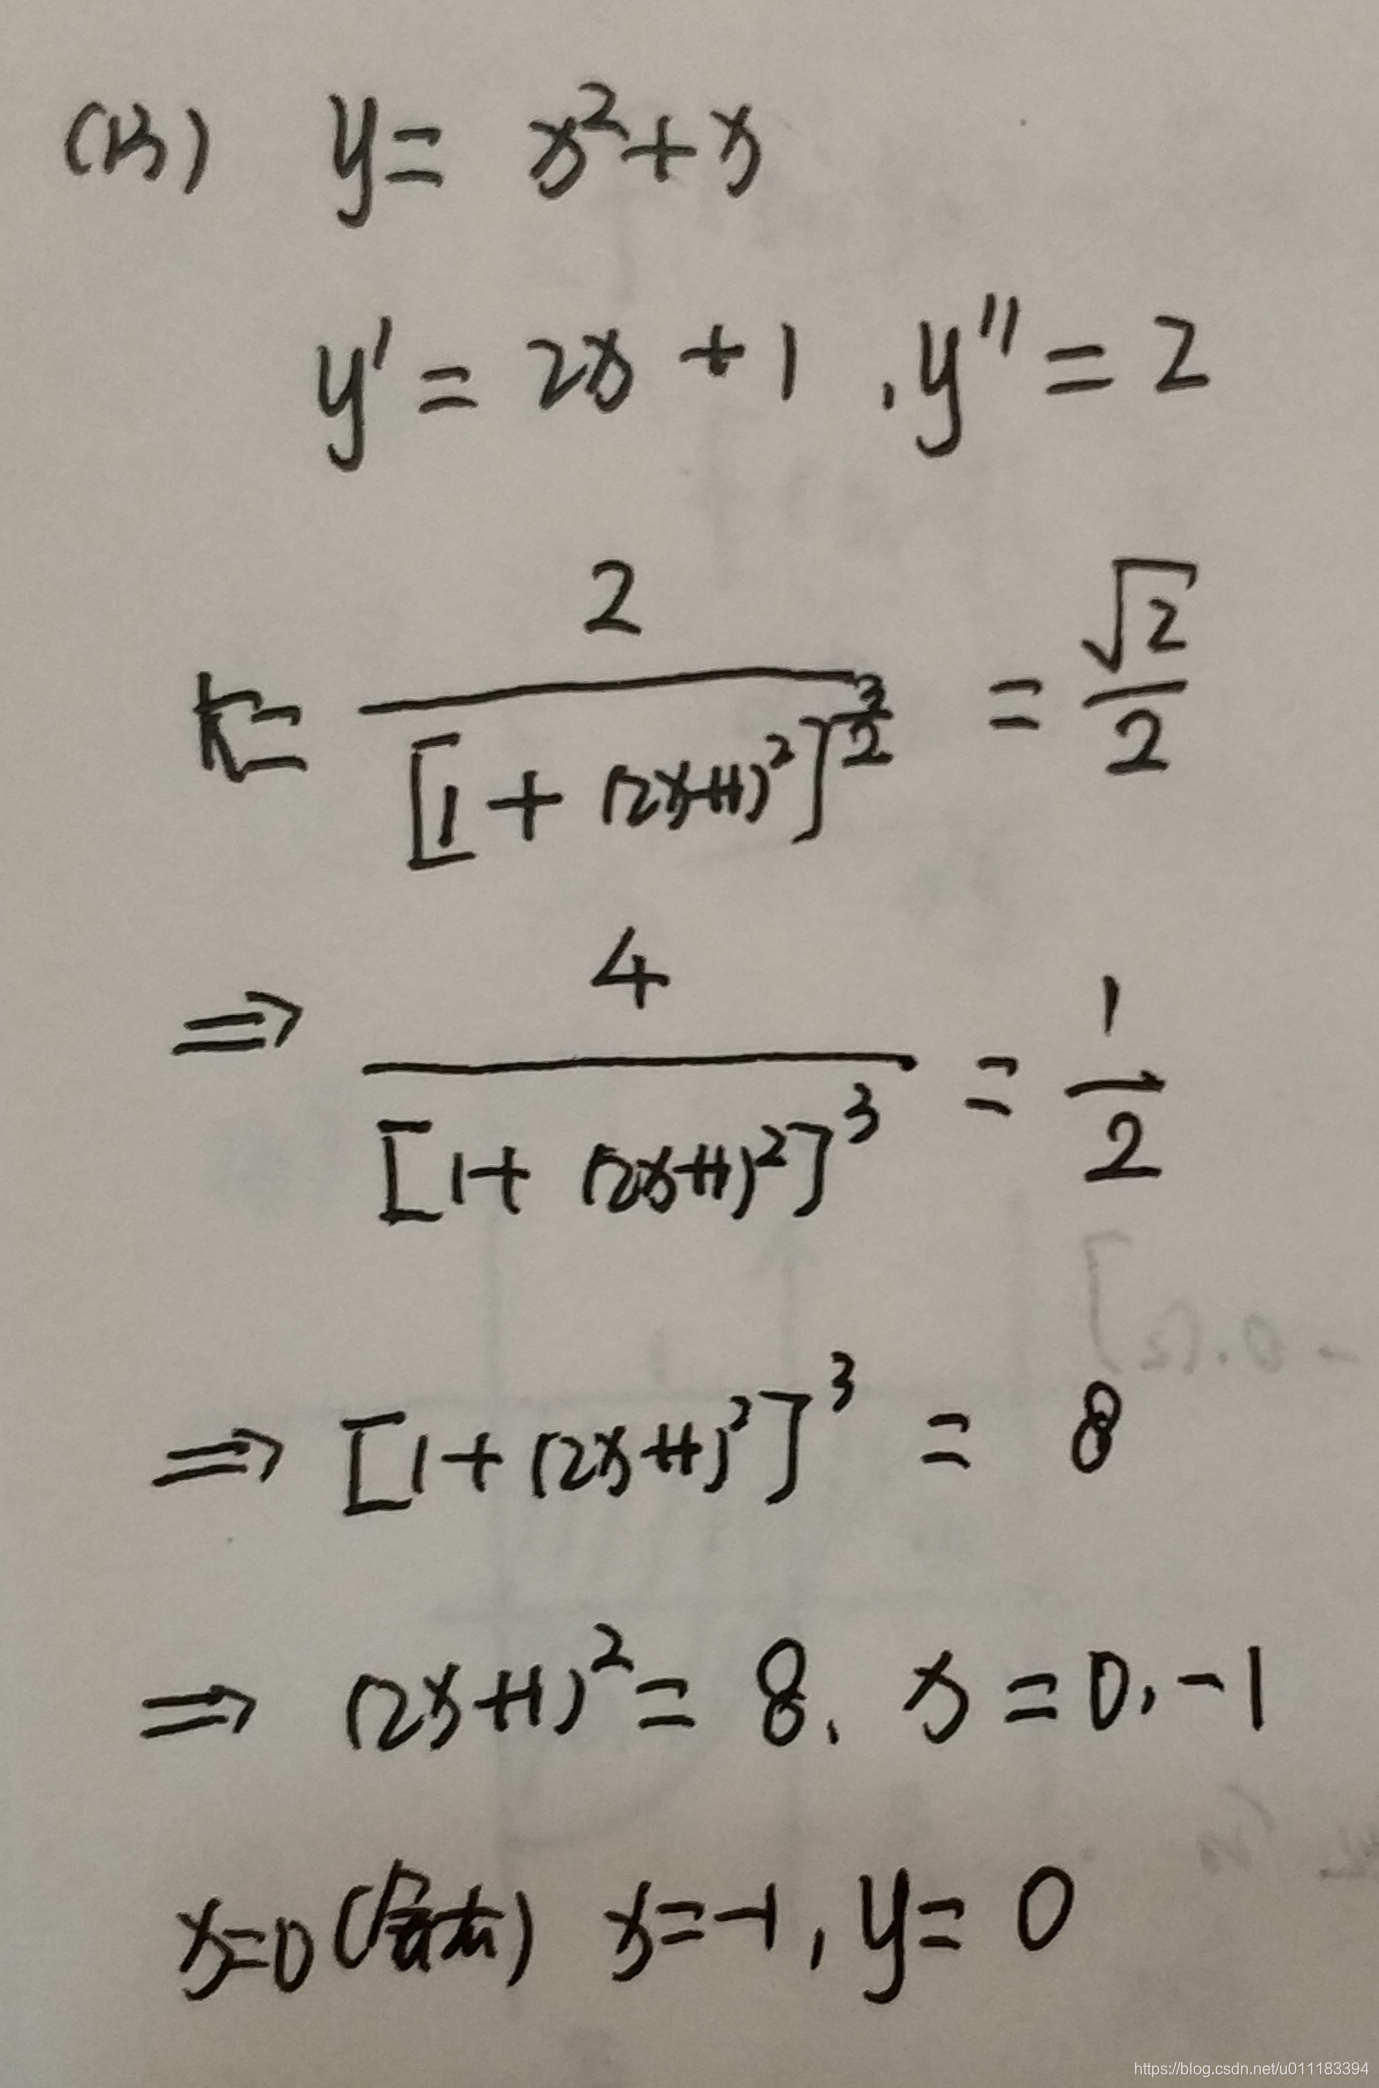 (13) y = x²+x
y' = 2x + 1 , y'' = 2
k = 2/[1+(2x+1)²]^(3/2) = √2/2
⇒ 4/[1+(2x+1)²]³ = 1/2
⇒ [1+(2x+1)²]³ = 8
⇒ (2x+1)² = 8, x = 0, -1
x=0 (舍去) x=-1, y= 0
https://blog.csdn.net/u011183394